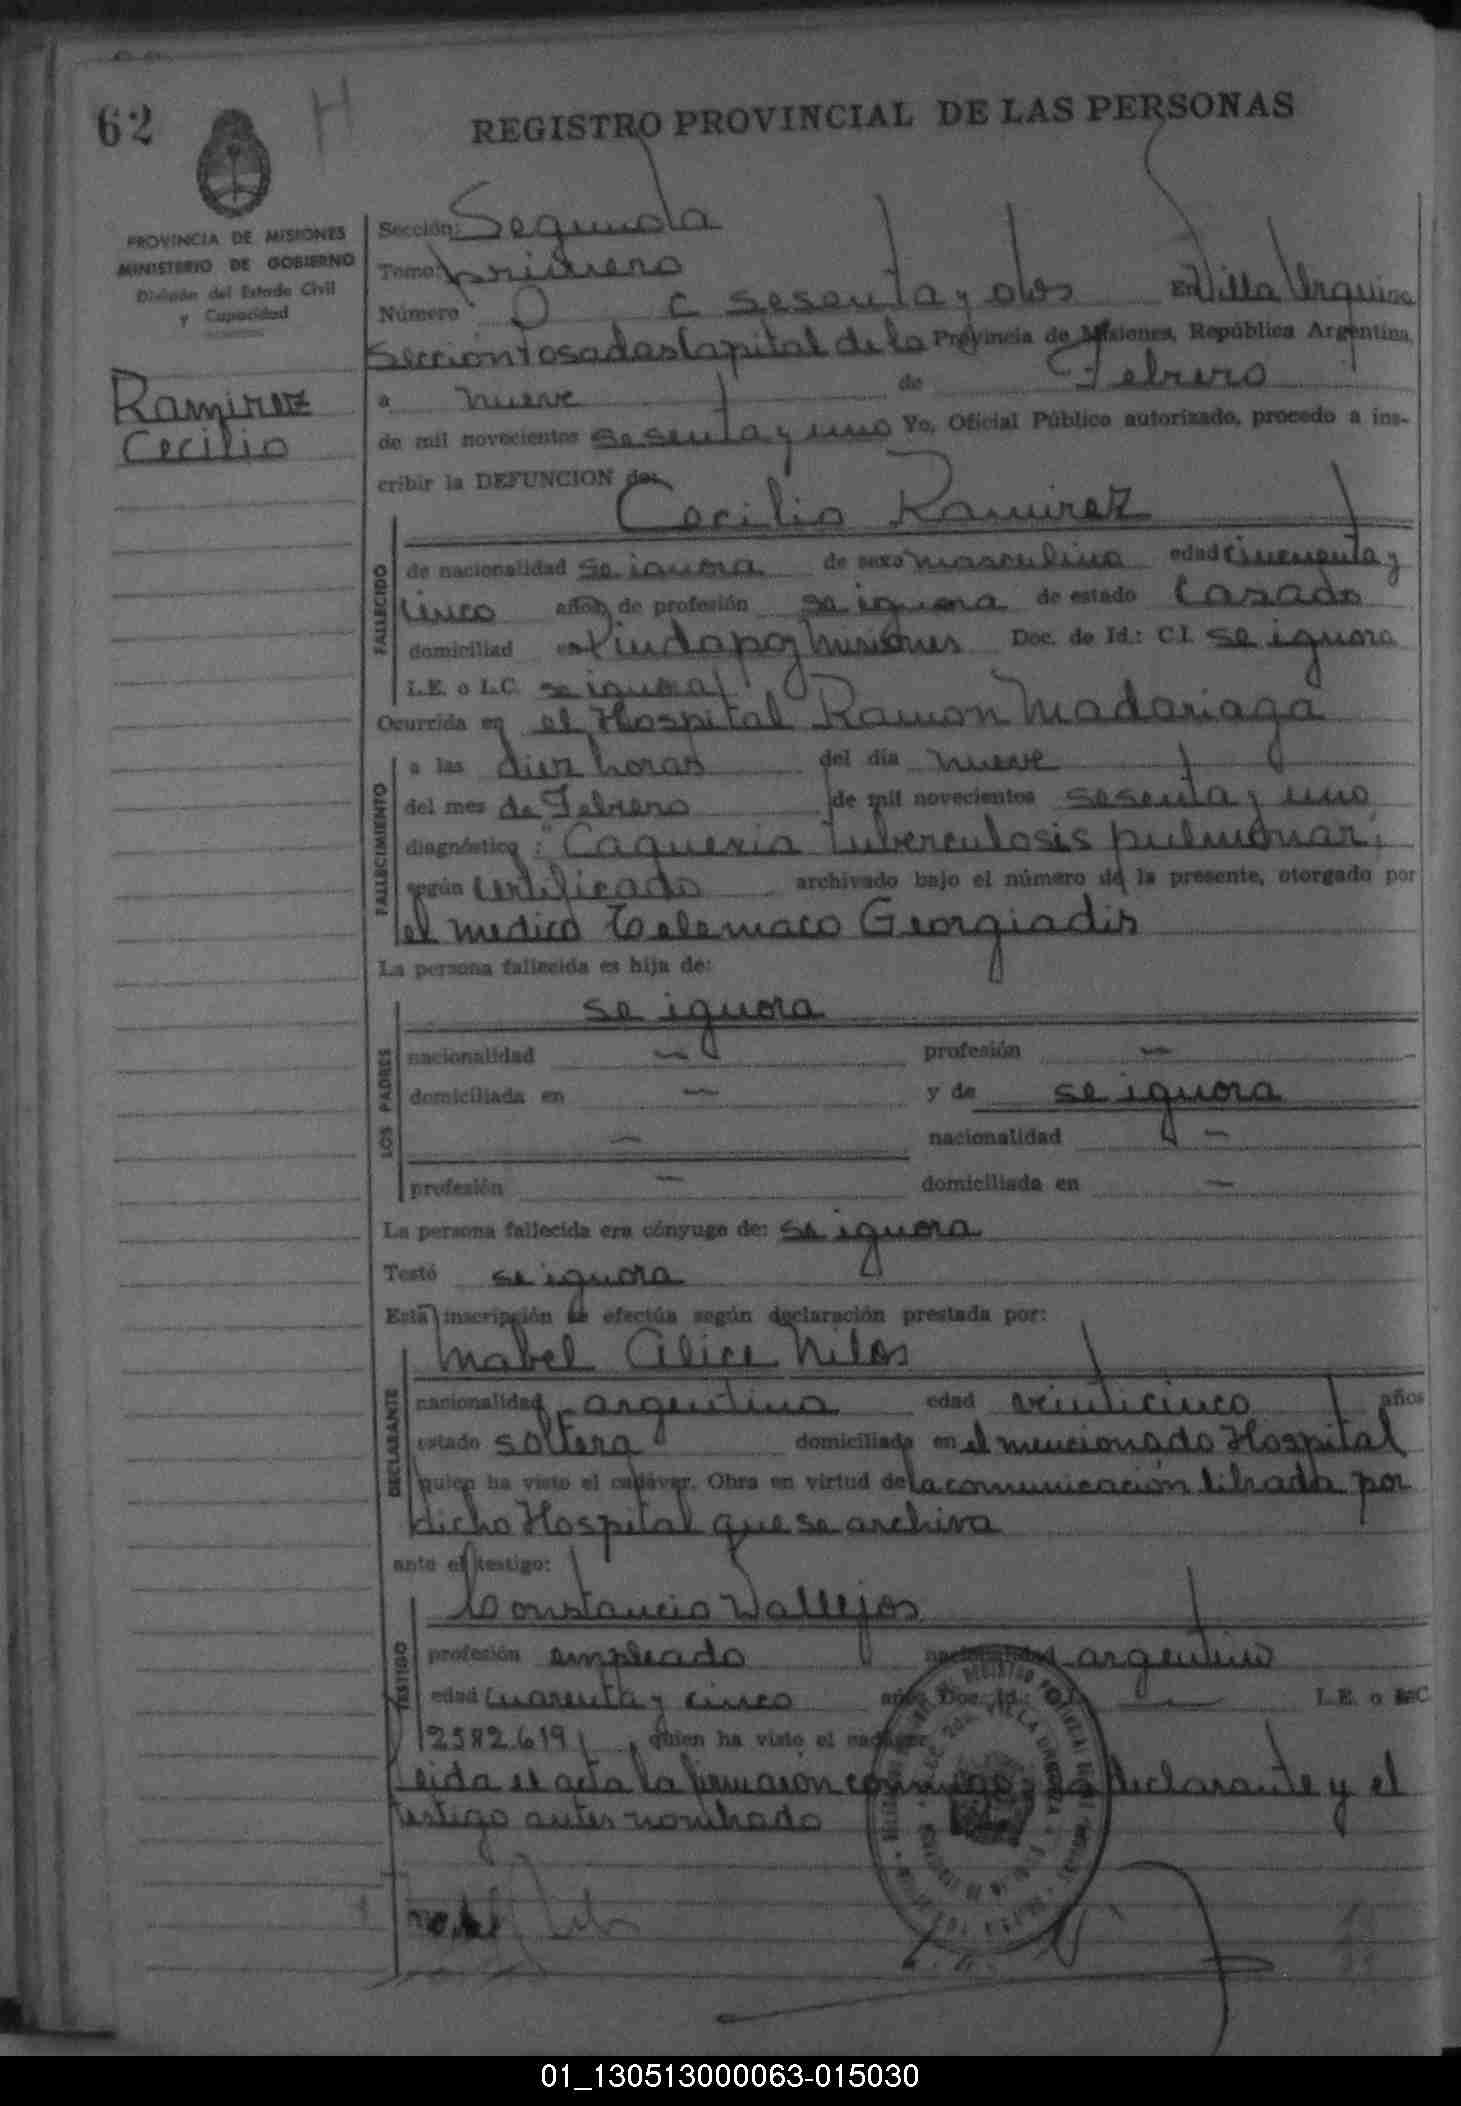 62
H
REGISTRO PROVINCIAL DE LAS PERSONAS
PROVINCIA DE MISIONES
MINISTERIO DE GOBIERNO
División del Estado Civil
y Capacidad
Ramirez
Cecilio
Sección: Segunda
Tomo: primero
Número sesenta y dos En Villa Urquiza
Sección Posadas Capital de la Provincia de Misiones, República Argentina,
a nueve de Febrero
de mil novecientos sesenta y uno Yo, Oficial Público autorizado, procedo a ins-
cribir la DEFUNCION de:
Cecilio Ramirez
FALLECIDO
de nacionalidad se ignora de sexo masculino edad cincuenta y
cinco años, de profesión se ignora de estado Casado
domiciliad en Pindapoy Misiones Doc. de Id.: C.I. se ignora
L.E. o L.C. se ignora
Ocurrida en el Hospital Ramon Madariaga
FALLECIMIENTO
a las diez horas del día nueve
del mes de Febrero de mil novecientos sesenta y uno
diagnóstico: "Caquexia tuberculosis pulmonar"
según certificado archivado bajo el número de la presente, otorgado por
el medico Telemaco Georgiadis
La persona fallecida es hija de:
LOS PADRES
se ignora
nacionalidad — profesión —
domiciliada en — y de se ignora
— nacionalidad —
profesión — domiciliada en —
La persona fallecida era cónyuge de: se ignora
Testó se ignora
Esta inscripción se efectúa según declaración prestada por:
DECLARANTE
Mabel Alice Nilos
nacionalidad argentina edad veinticinco años
estado soltera domiciliada en el mencionado Hospital
quien ha visto el cadáver. Obra en virtud de la comunicación librada por
dicho Hospital que se archiva
ante el testigo:
TESTIGO
Constancio Vallejos
profesión empleado nacionalidad argentino
edad cuarenta y cinco años Doc. Id.: C.I. — L.E. o L.C
2582.619 quien ha visto el cadáver
Leida el acta la firmaron conmigo la declarante y el
testigo antes nombrado
01_130513000063-015030